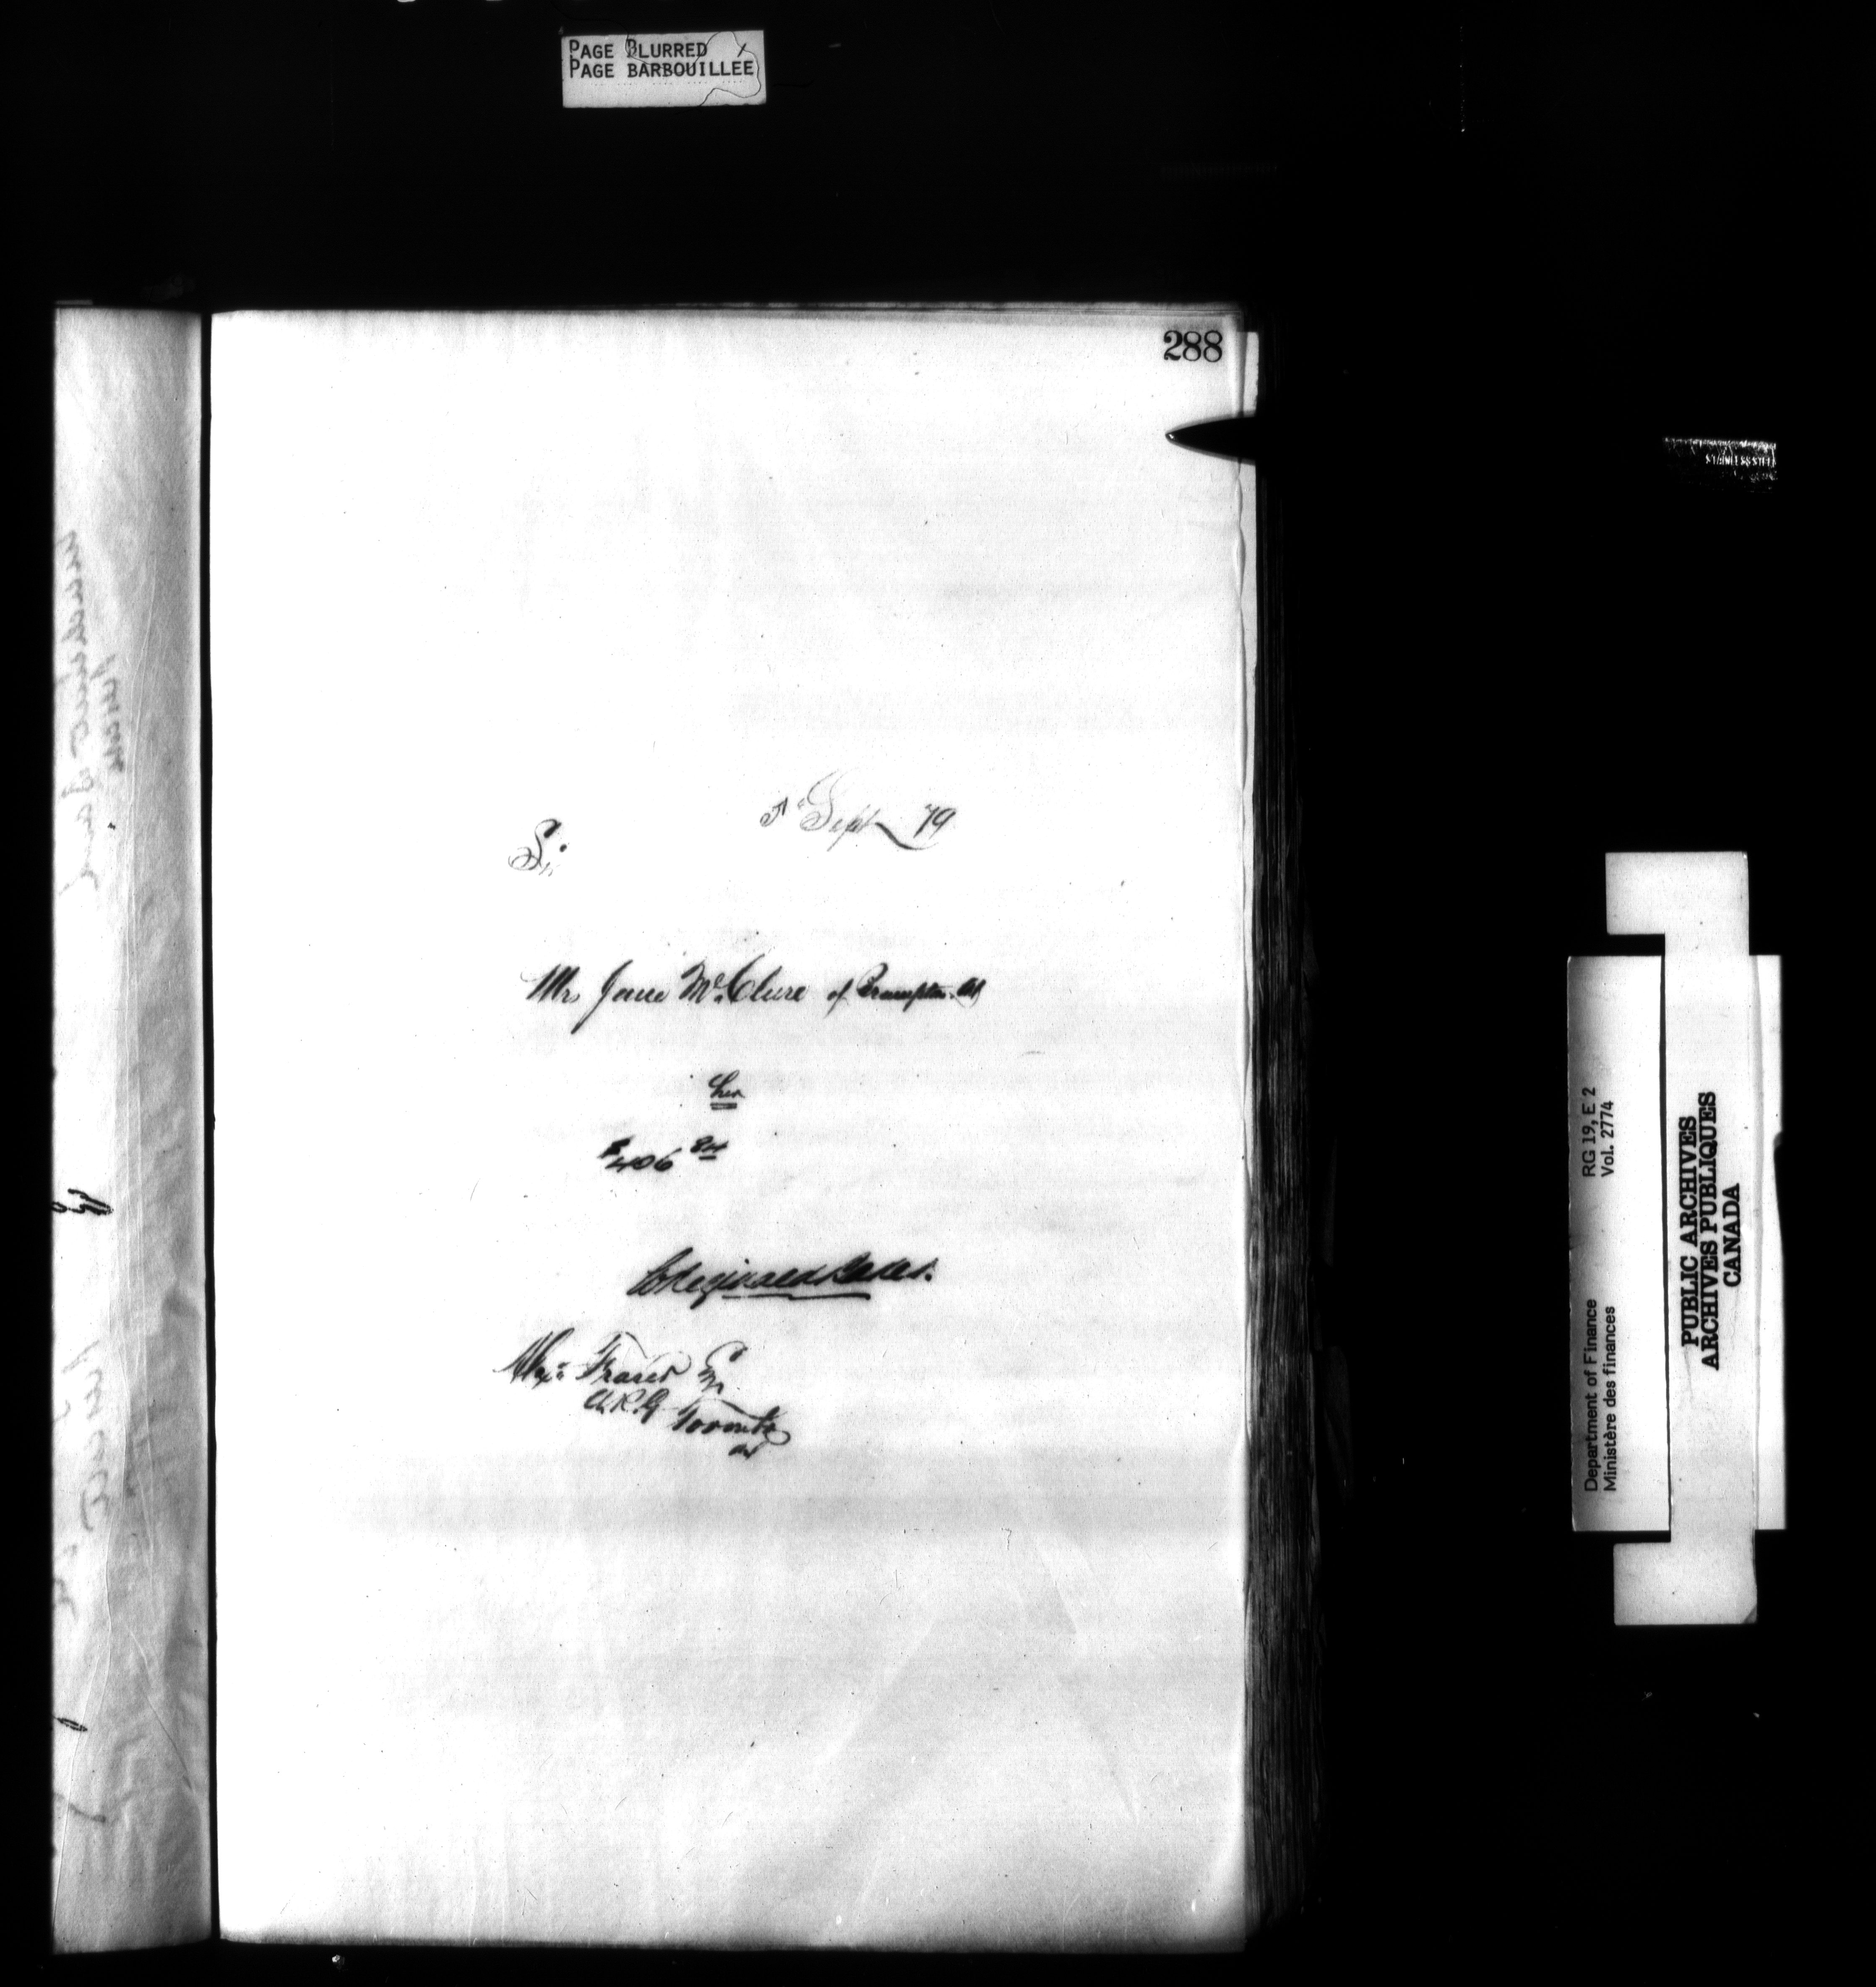 PAGE BLURRED
PAGE BARBOUILLEE
288
Sept 79
Sir
Mrs Jane McClure of Brampton. Ont
her
$406 84
Alexr Fraser Esq
A.R.G Toronto
Ont
Department of Finance RG 19, E 2
Ministère des finances Vol. 2774
PUBLIC ARCHIVES
ARCHIVES PUBLIQUES
CANADA
STAINLESS STEEL